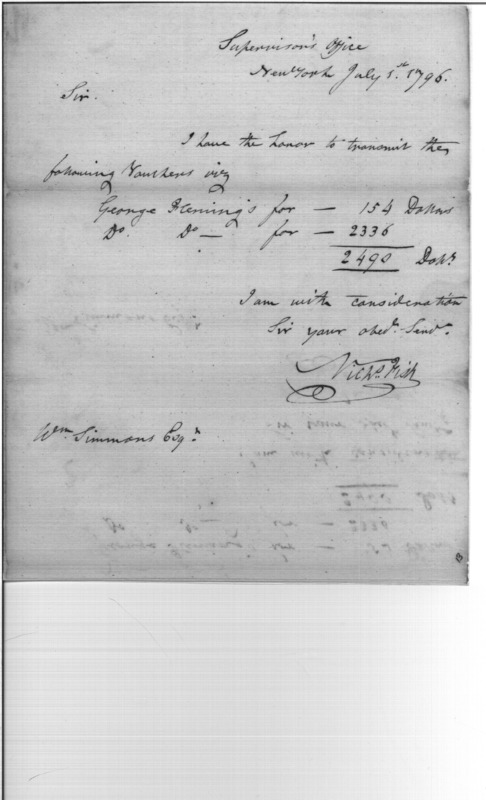 Supervisor's Office
New York July 1st. 1796.
Sir.
I have the honor to transmit the
following Vouchers viz
George Fleming's for — 154 Dollars
Do. Do — for — 2336
2490 Dolls.
I am with consideration
Sir your obedt. Servt.
Nichs. Fish
Wm. Simmons Esqr.